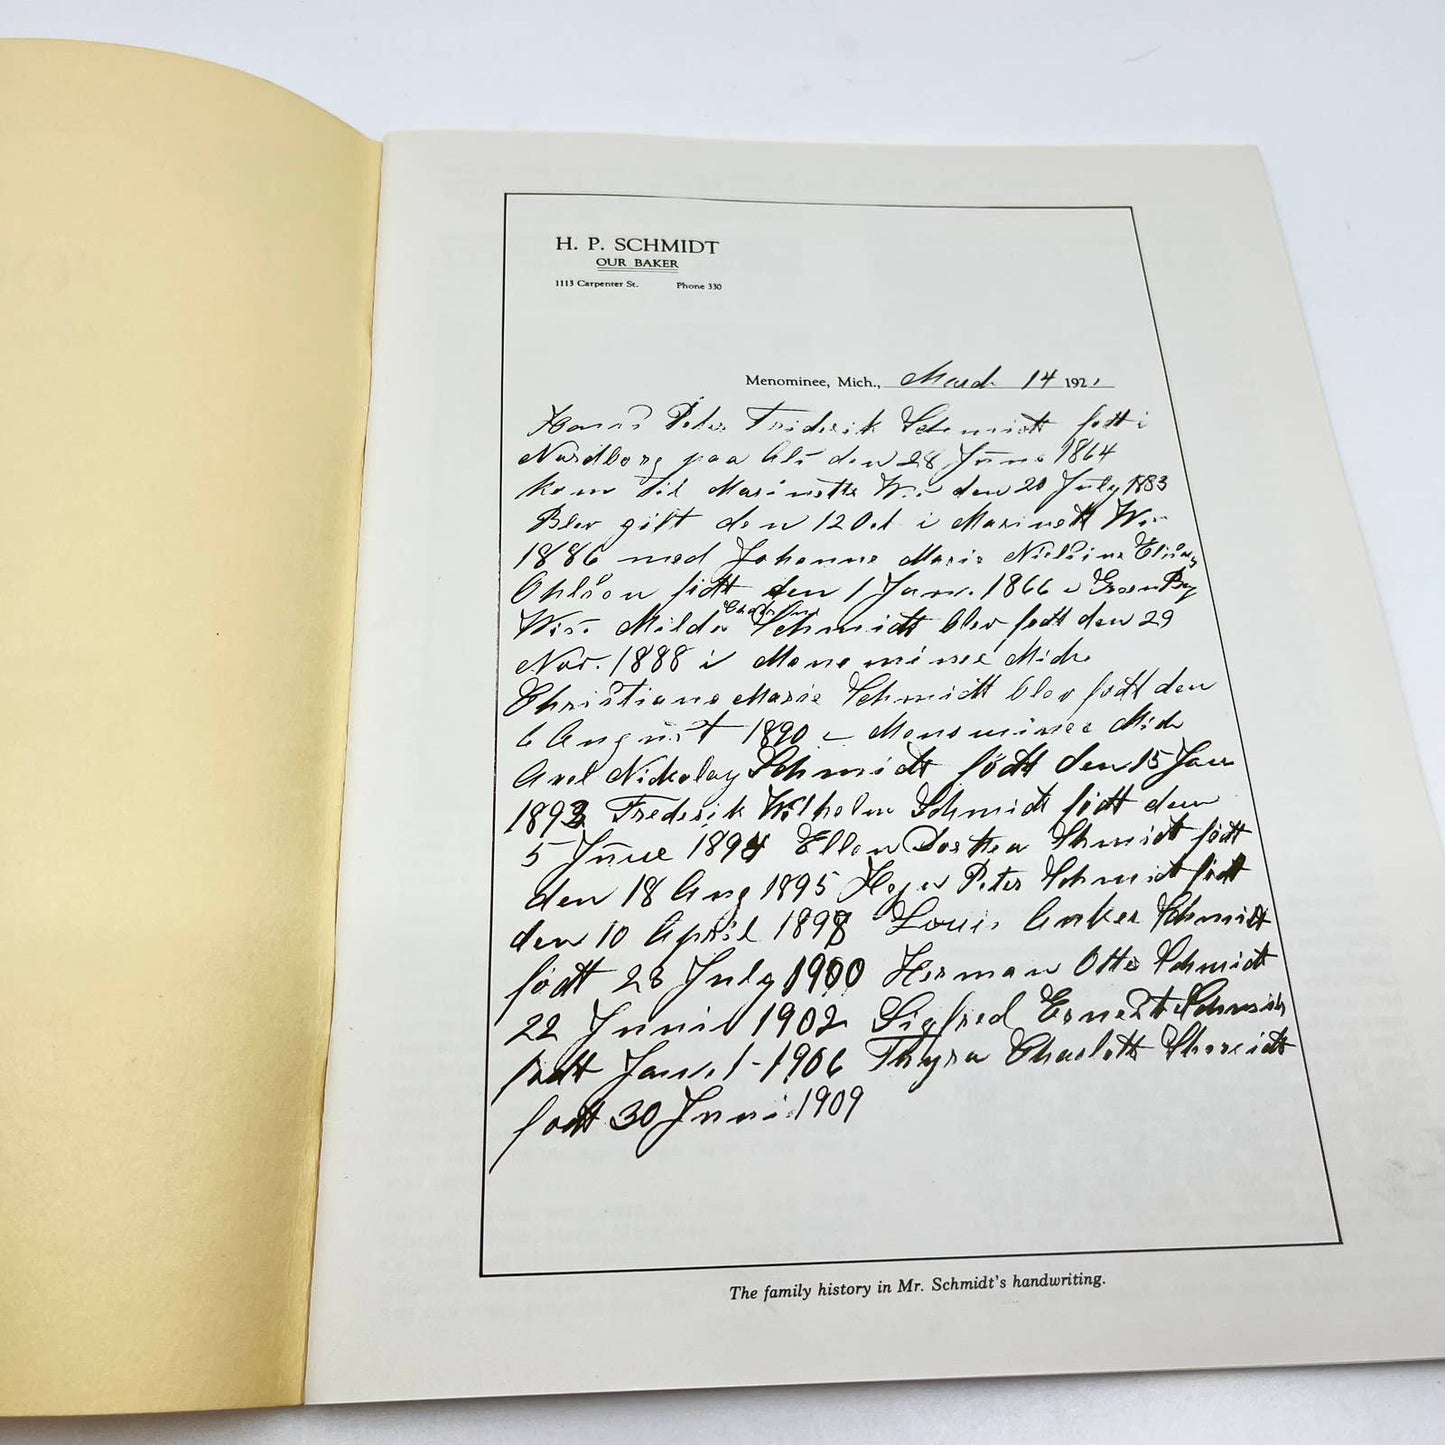 H. P. SCHMIDT
OUR BAKER
1113 Carpenter St. Phone 330
Menominee, Mich., March 14 1921
Hans Peter Friderik Schmidt født i
Nordborg paa Als den 28 June 1864
kom til Marinette Wis den 20 July 1883
Blev gift den 12 Oct i Marinett Wis
1886 med Johanne Marie Nielsine
Ohlson født den 1 Jan. 1866 i
Wis. Schmidt blev født den 29
Nov. 1888 i Menominee Mich
Christiane Marie Schmidt blev født den
6 August 1890 i Menominee Mich
Axel Nickolay Schmidt født den 15 Jan
1893 Frederik Wilhelm Schmidt født den
5 June 1894 Ellen Dorthea Schmidt født
den 18 Aug 1895 Peter Schmidt født
den 10 April 1898 Louis Anker Schmidt
født 28 July 1900 Herman Otto Schmidt
22 Juni 1902 Sigfred Ernest Schmidt
født Jan. 1 - 1906 Thyra Charlott Schmidt
født 30 Juni 1909
The family history in Mr. Schmidt's handwriting.